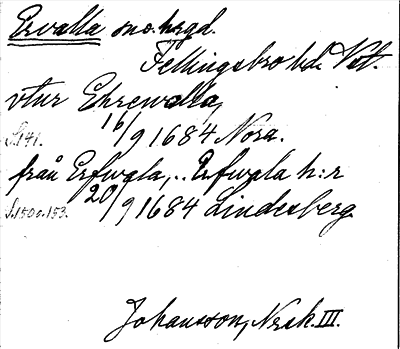 Ervalla sn o. hrgd.
Fellingsbro hd. Vstl.
utur Ehrewalla,
S.141. 16/9 1684 Nora.
från Erfwala, .. Erfwala h:r
S.150 o. 153. 20/9 1684 Lindesberg
Johansson, Nrsk. III.